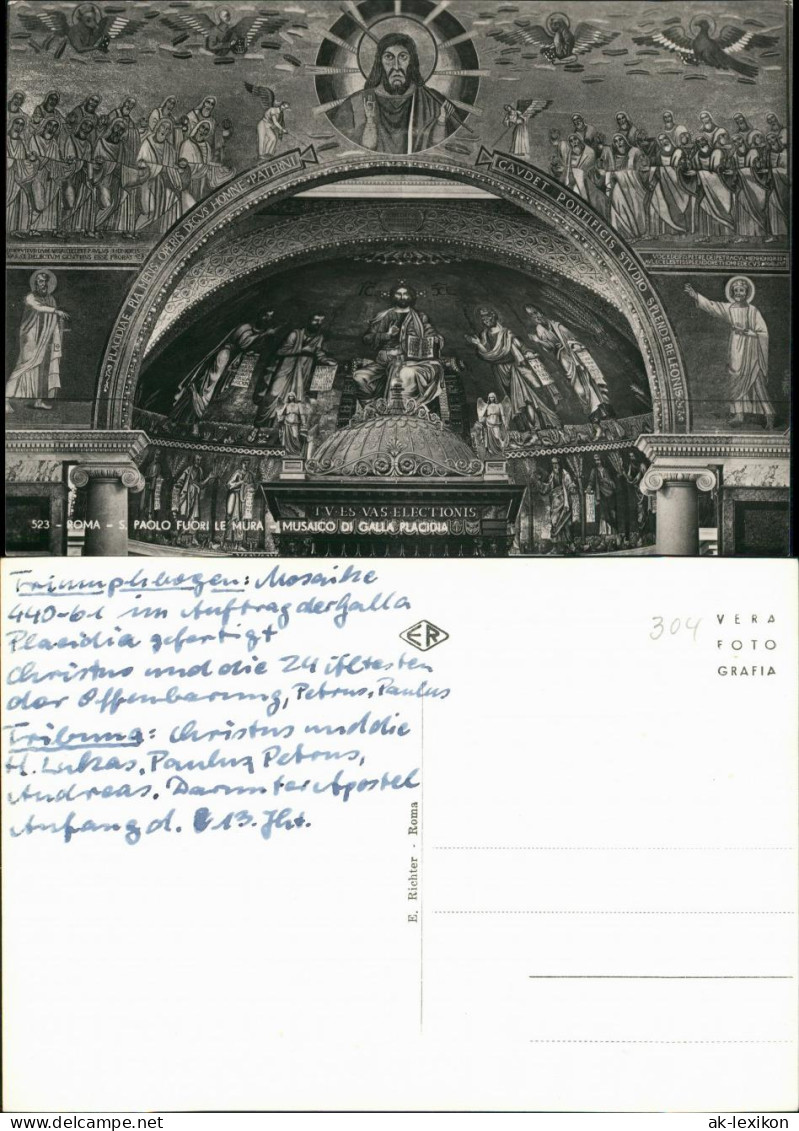 PLACIDIAE PIA MENS OPERIS DECVS HOMNE PATERNI
GAVDET PONTIFICIS STVDIO SPLENDERE LEONIS
IC XC
TV·ES VAS·ELECTIONIS
523 - ROMA - S. PAOLO FUORI LE MURA - MUSAICO DI GALLA PLACIDIA
Triumphbogen: Mosaike
440-61 im Auftrag der Galla
Placidia gefertigt
Christus und die 24 Ältesten
der Offenbarung, Petrus, Paulus
Tribuna: Christus und die
H. Lukas, Paulus, Petrus,
Andreas. Darunter Apostel
Anfang d. 13. Jht.
ER
304
VERA
FOTO
GRAFIA
E. Richter - Roma
ansichtskarten-lexikon.de
ak-lexikon